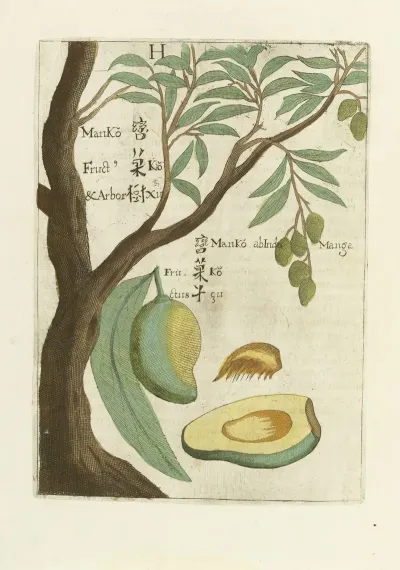 H
ManKŏ
Fruct⁹ 菓 Kŏ
&Arbor 樹 Xu
ManKŏ ab Indis Manga
Fru- 菓 Kŏ
ctus çu